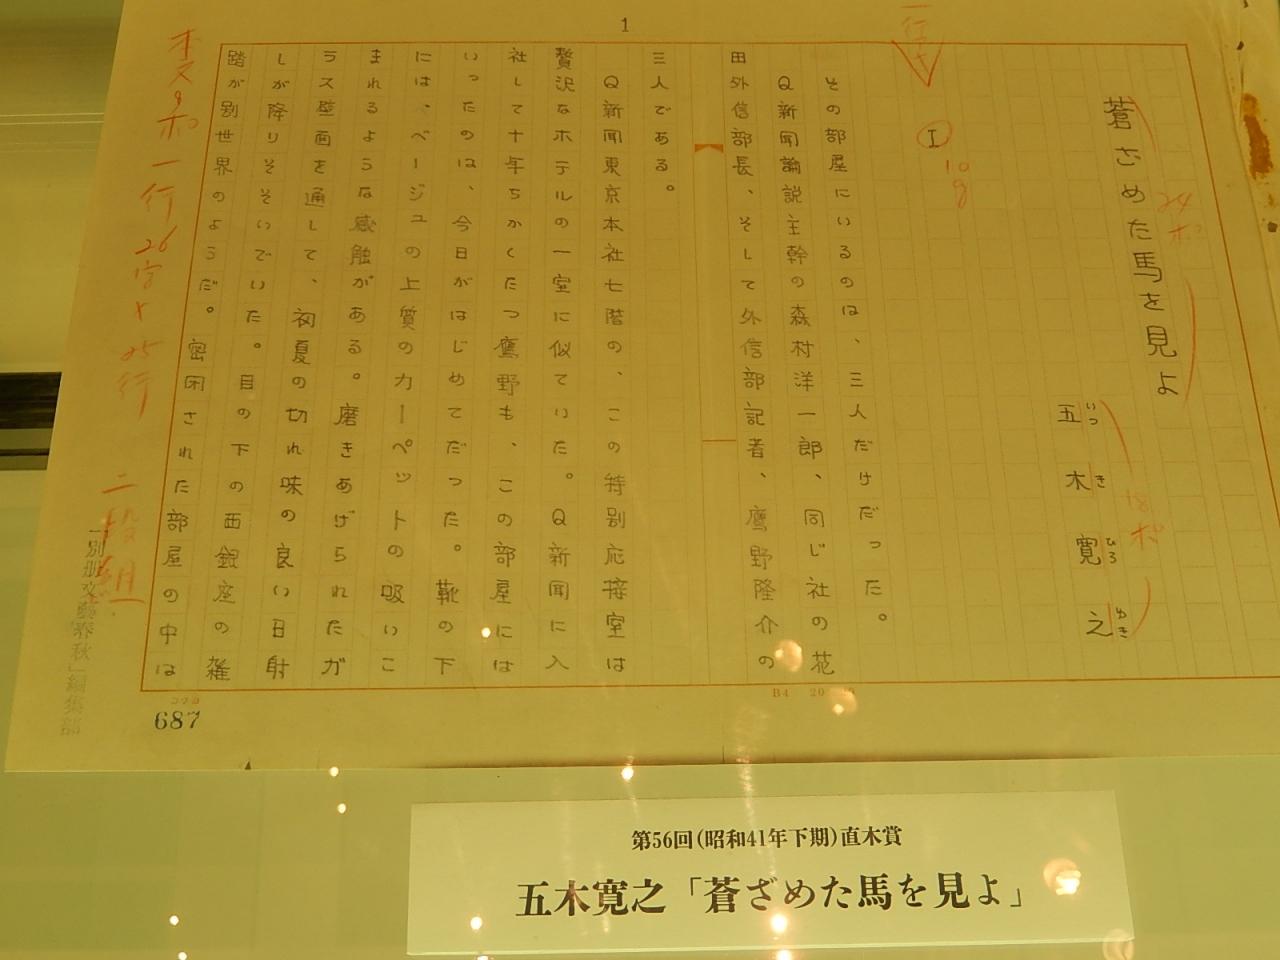 1
蒼ざめた馬を見よ
24ポ
五木寛之
いつきひろゆき
18ポ
I
その部屋にいるのは、三人だけだった。
Q新聞論説主幹の森村洋一郎、同じ社の花
田外信部長、そして外信部記者、鷹野隆介の
三人である。
Q新聞東京本社七階の、この特別応接室は
贅沢なホテルの一室に似ていた。Q新聞に入
社して十年ちかくたつ鷹野も、この部屋には
いったのは、今日がはじめてだった。靴の下
には、ベージュの上質のカーペットの吸いこ
まれるような感触がある。磨きあげられたガ
ラス壁画を通して、初夏の切れ味の良い日射
しが降りそそいでいた。目の下の西銀座の雑
踏が別世界のようだ。密閉された部屋の中は
本文9ポ一行26字×25行 二段組
「別册文藝春秋」編集部
コクヨ
687
B4
第56回(昭和41年下期)直木賞
五木寛之「蒼ざめた馬を見よ」